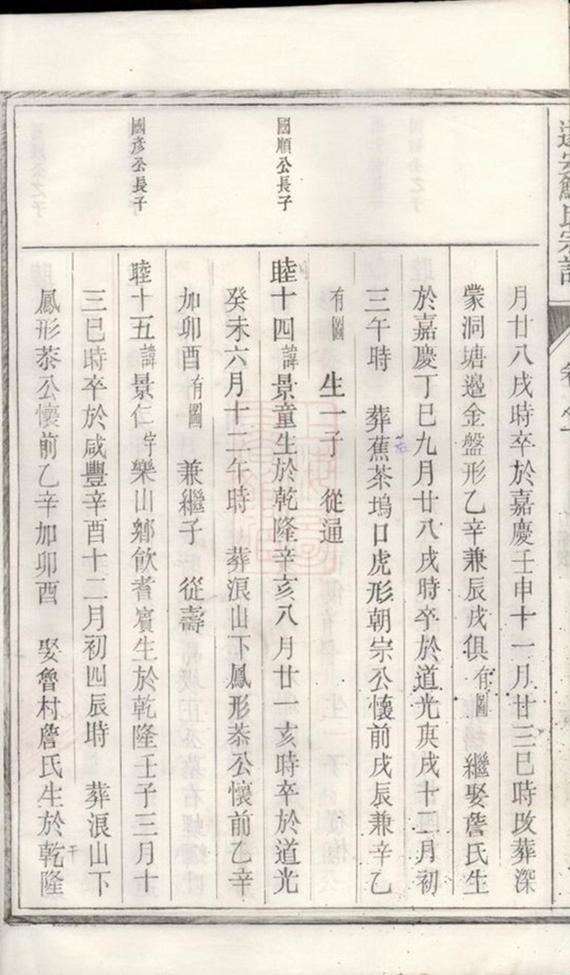 蘇氏宗譜
月廿八戌時卒於嘉慶壬申十一月廿三巳時改葬深
蒙洞塘邊金盤形乙辛兼辰戌俱有圖 繼娶詹氏生
於嘉慶丁巳九月廿八戌時卒於道光庚戌十二月初
三午時 葬蕉茶塢口虎形朝宗公懷前戌辰兼辛乙
有圖 生一子 從通
國順公長子
睦十四諱景童生於乾隆辛亥八月廿一亥時卒於道光
癸未六月十二午時 葬浪山下鳳形茶公懷前乙辛
加卯酉有圖 兼繼子 從壽
國彥公長子
睦十五諱景仁字樂山鄉飲耆賓生於乾隆壬子三月十
三巳時卒於咸豐辛酉十二月初四辰時 葬浪山下
鳳形茶公懷前乙辛加卯酉 娶魯村詹氏生於乾隆